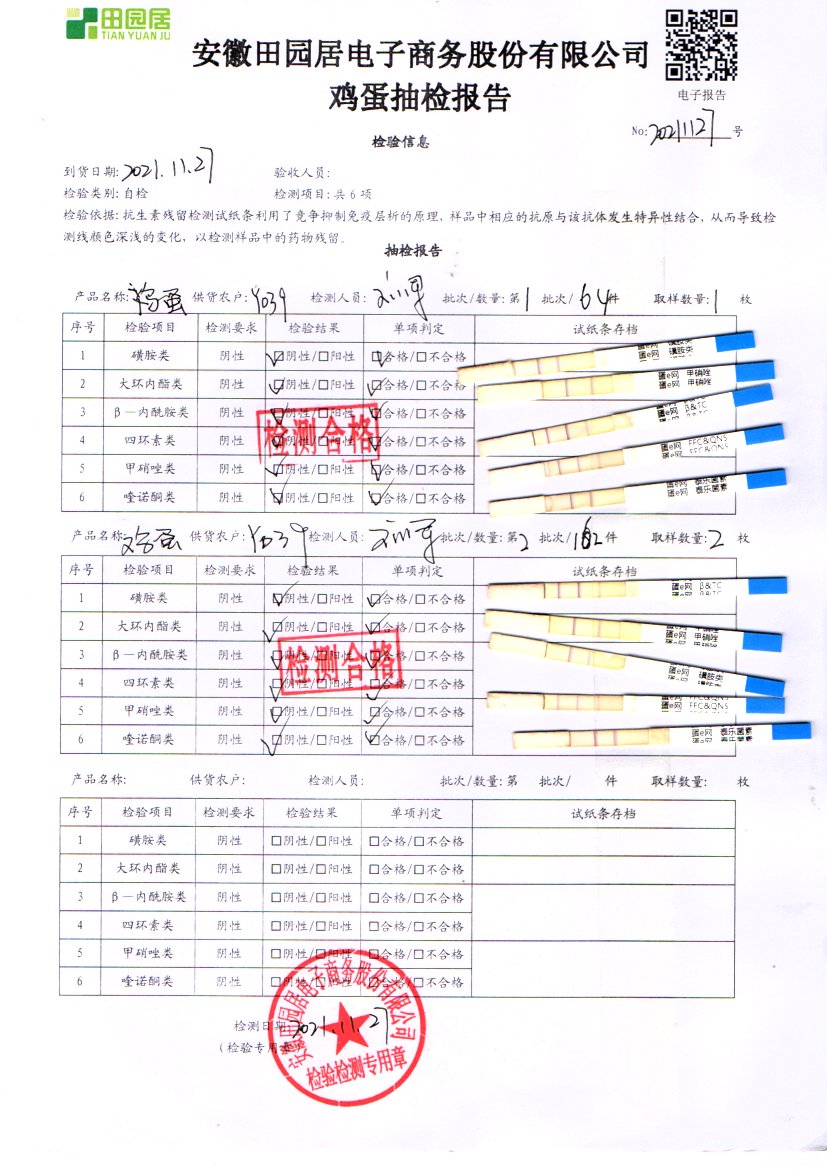 田园居
TIAN YUAN JU
安徽田园居电子商务股份有限公司
鸡蛋抽检报告
电子报告
No: 20211127 号
检验信息
到货日期: 2021.11.27 验收人员:
检验类别: 自检 检测项目: 共 6 项
检验依据: 抗生素残留检测试纸条利用了竞争抑制免疫层析的原理, 样品中相应的抗原与该抗体发生特异性结合, 从而导致检
测线颜色深浅的变化, 以检测样品中的药物残留。
抽检报告
产品名称: 鸡蛋 供货农户: Y039 检测人员: 批次/数量: 第 1 批次/ 64 件 取样数量: 1 枚
序号 检验项目 检测要求 检验结果 单项判定 试纸条存档
1 磺胺类 阴性 ☑阴性/□阳性 ☑合格/□不合格
2 大环内酯类 阴性 ☑阴性/□阳性 ☑合格/□不合格
3 β—内酰胺类 阴性 ☑阴性/□阳性 ☑合格/□不合格
4 四环素类 阴性 ☑阴性/□阳性 ☑合格/□不合格
5 甲硝唑类 阴性 ☑阴性/□阳性 ☑合格/□不合格
6 喹诺酮类 阴性 ☑阴性/□阳性 ☑合格/□不合格
检测合格
蛋e网 磺胺类
蛋e网 磺胺类
蛋e网 甲硝唑
蛋e网 甲硝唑
蛋e网 β&TC
蛋e网 FFC&QNS
蛋e网 泰乐菌素
蛋e网 泰乐菌素
产品名称: 鸡蛋 供货农户: Y039 检测人员: 批次/数量: 第 2 批次/ 162 件 取样数量: 2 枚
序号 检验项目 检测要求 检验结果 单项判定 试纸条存档
1 磺胺类 阴性 ☑阴性/□阳性 ☑合格/□不合格
2 大环内酯类 阴性 ☑阴性/□阳性 ☑合格/□不合格
3 β—内酰胺类 阴性 ☑阴性/□阳性 ☑合格/□不合格
4 四环素类 阴性 ☑阴性/□阳性 ☑合格/□不合格
5 甲硝唑类 阴性 ☑阴性/□阳性 ☑合格/□不合格
6 喹诺酮类 阴性 ☑阴性/□阳性 ☑合格/□不合格
检测合格
蛋e网 β&TC
蛋e网 甲硝唑
蛋e网 磺胺类
蛋e网 FFC&QNS
蛋e网 泰乐菌素
产品名称: 供货农户: 检测人员: 批次/数量: 第 批次/ 件 取样数量: 枚
序号 检验项目 检测要求 检验结果 单项判定 试纸条存档
1 磺胺类 阴性 □阴性/□阳性 □合格/□不合格
2 大环内酯类 阴性 □阴性/□阳性 □合格/□不合格
3 β—内酰胺类 阴性 □阴性/□阳性 □合格/□不合格
4 四环素类 阴性 □阴性/□阳性 □合格/□不合格
5 甲硝唑类 阴性 □阴性/□阳性 □合格/□不合格
6 喹诺酮类 阴性 □阴性/□阳性 □合格/□不合格
检测日期: 2021.11.27
(检验专用章)
安徽田园居电子商务股份有限公司
检验检测专用章